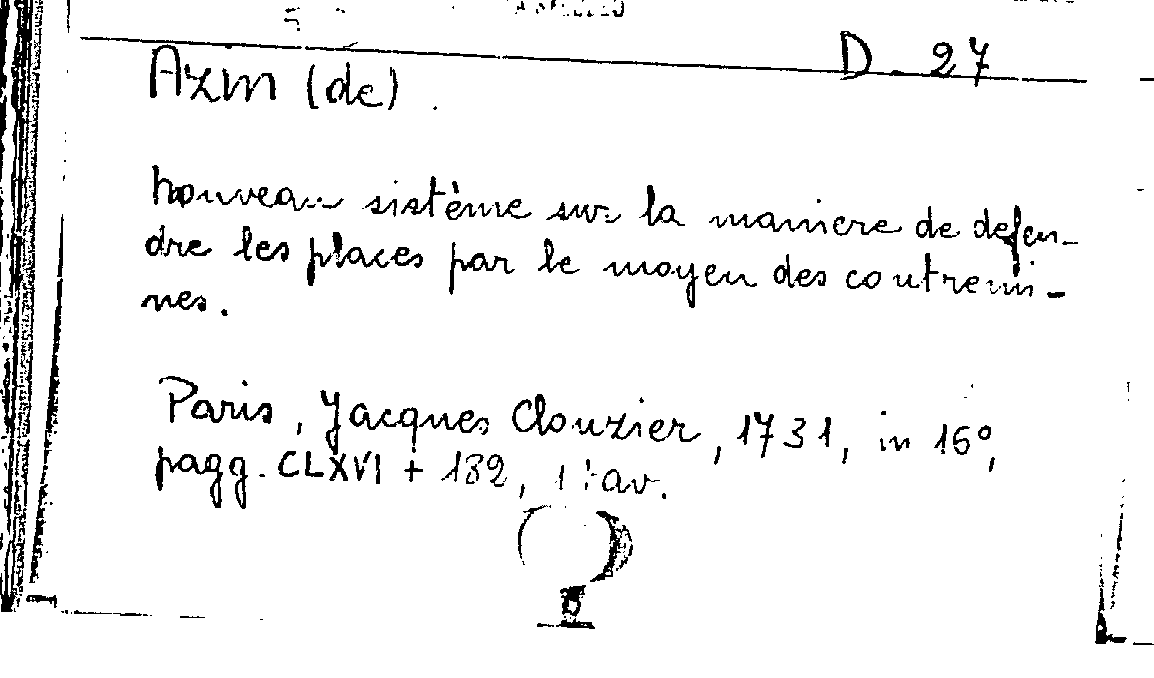 D. 27
Azin (de).
Nouveau sistème sur la maniere de defen-
dre les places par le moyen des contremi-
nes.
Paris, Jacques Clouzier, 1731, in 16°,
pagg. CLXVI + 182, 1 tav.